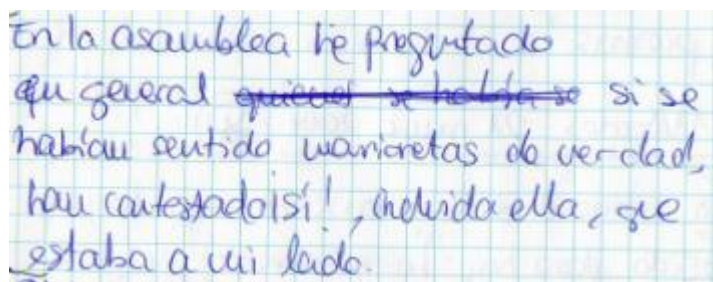 En la asamblea he preguntado
en general quienes se había se si se
habían sentido marionetas de verdad,
han contestado ¡sí!, incluida ella, que
estaba a mi lado.